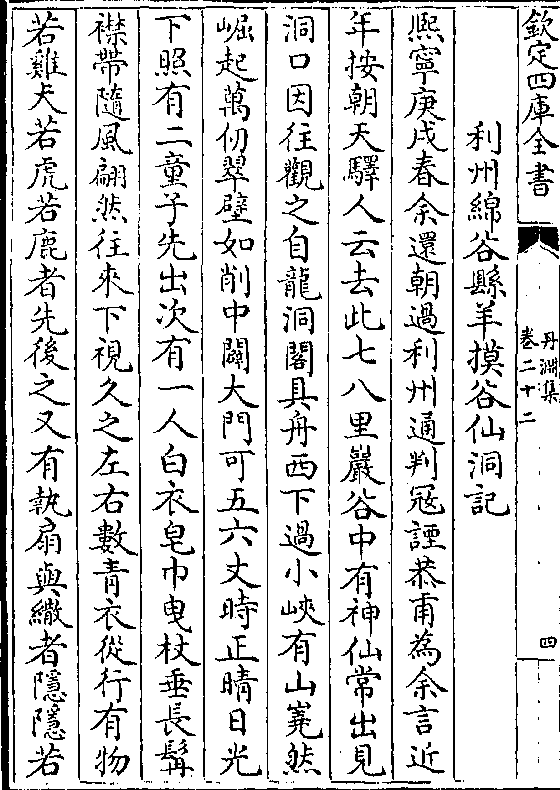 欽定四庫全書
丹淵集
卷二十二
四
利州綿谷縣羊摸谷仙洞記
熈寧庚戌春余還朝過利州通判冦諲恭甫為余言近
年按朝天驛人云去此七八里巖谷中有神仙常出見
洞口因往觀之自龍洞閣具舟西下過小峽有山嶤然
崛起萬仞翠壁如削中闢大門可五六丈時正晴日光
下照有二童子先出次有一人白衣皂巾曳杖垂長髯
襟帶隨風翩然往來下視久之左右數青衣從行有物
若雞犬若虎若鹿者先後之又有執扇與繖者隱隱若